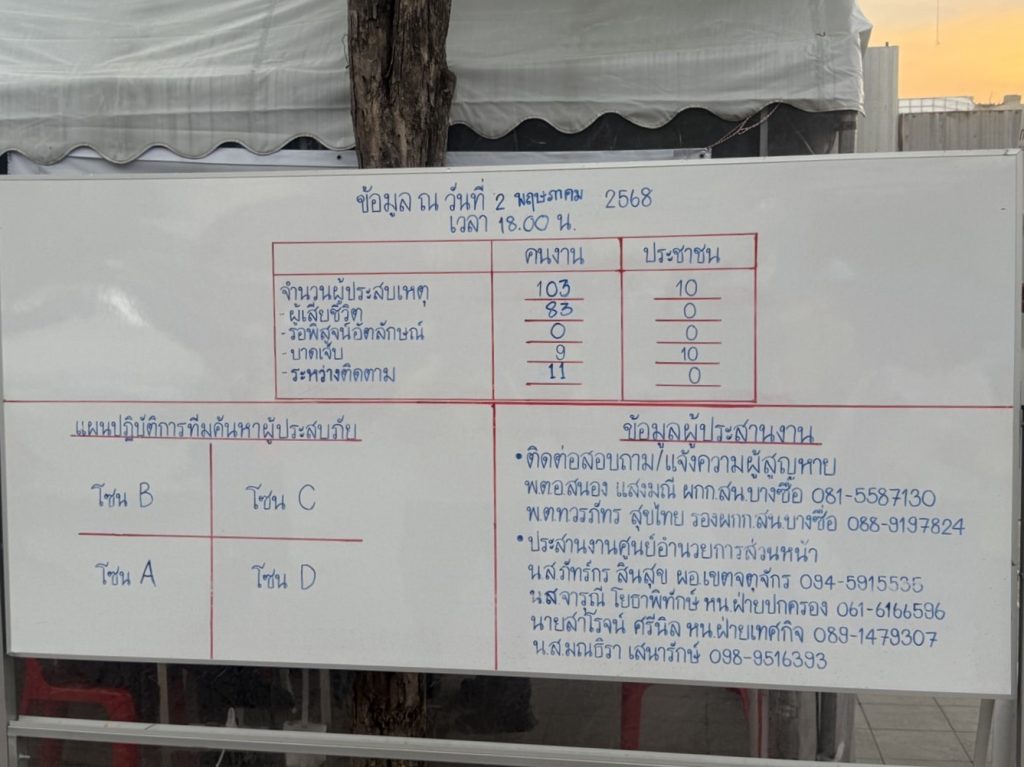 ข้อมูล ณ วันที่ 2 พฤษภาคม 2568
เวลา 18.00 น.
คนงาน ประชาชน
จำนวนผู้ประสบเหตุ 103 10
- ผู้เสียชีวิต 83 0
- รอพิสูจน์อัตลักษณ์ 0 0
- บาดเจ็บ 9 10
- ระหว่างติดตาม 11 0
แผนปฏิบัติการทีมค้นหาผู้ประสบภัย
โซน B โซน C
โซน A โซน D
ข้อมูลผู้ประสานงาน
• ติดต่อสอบถาม/แจ้งความผู้สูญหาย
พ.ต.อ.สนอง แสงมณี ผกก.สน.บางซื่อ 081-5587130
พ.ต.ท.วรภัทร สุขไทย รองผกก.สน.บางซื่อ 088-9197824
• ประสานงานศูนย์อำนวยการส่วนหน้า
น.ส.ภัทร์กร สินสุข ผอ.เขตจตุจักร 094-5915535
น.ส.จารุณี โยธาพิทักษ์ หน.ฝ่ายปกครอง 061-6166596
นายสาโรจน์ ศรีนิล หน.ฝ่ายเทศกิจ 089-1479307
น.ส.มณธิรา เสนารักษ์ 098-9516393